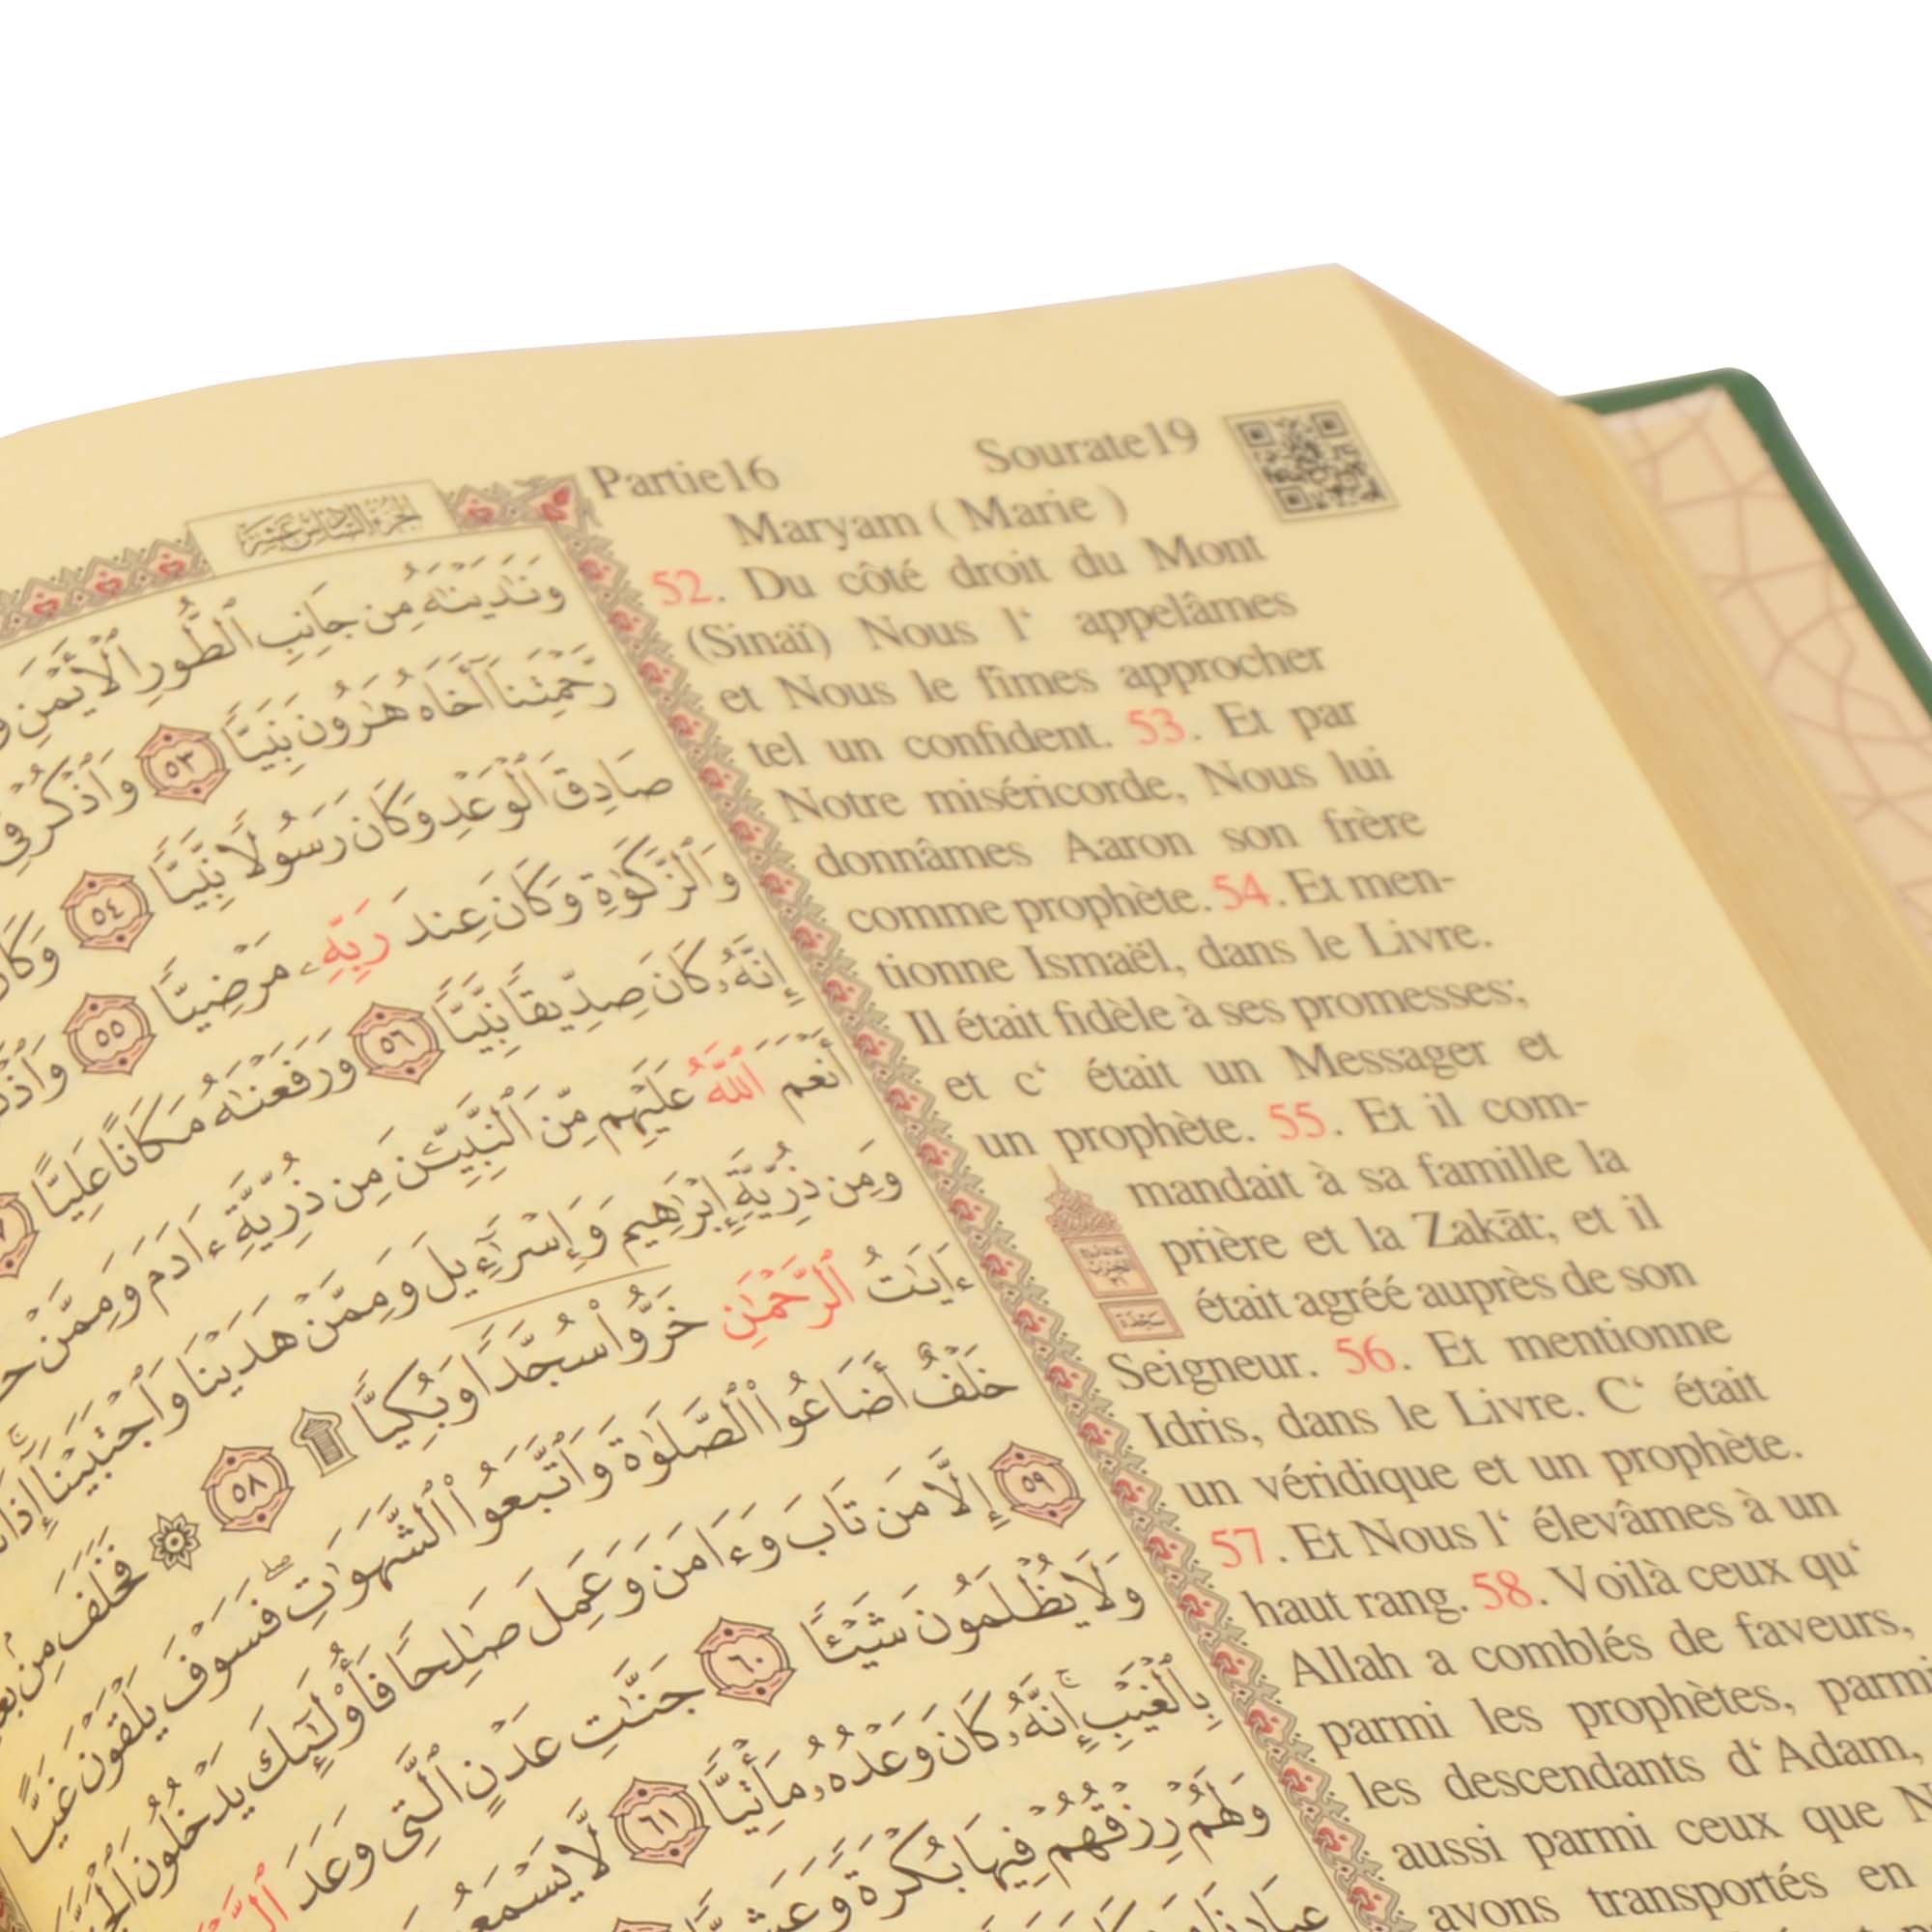 الجزء السادس عشر
وَنَٰدَيۡنَٰهُ مِن جَانِبِ ٱلطُّورِ ٱلۡأَيۡمَنِ
رَّحۡمَتِنَآ أَخَاهُ هَٰرُونَ نَبِيّٗا ٥٣ وَٱذۡكُرۡ فِي
صَادِقَ ٱلۡوَعۡدِ وَكَانَ رَسُولٗا نَّبِيّٗا ٥٤ وَكَانَ
وَٱلزَّكَوٰةِ وَكَانَ عِندَ رَبِّهِۦ مَرۡضِيّٗا ٥٥
إِنَّهُۥ كَانَ صِدِّيقٗا نَّبِيّٗا ٥٦ وَرَفَعۡنَٰهُ مَكَانًا عَلِيًّا
أَنۡعَمَ ٱللَّهُ عَلَيۡهِم مِّنَ ٱلنَّبِيِّـۧنَ مِن ذُرِّيَّةِ ءَادَمَ وَمِمَّنۡ
وَمِن ذُرِّيَّةِ إِبۡرَٰهِيمَ وَإِسۡرَٰٓءِيلَ وَمِمَّنۡ هَدَيۡنَا وَٱجۡتَبَيۡنَآۚ إِذَا
ءَايَٰتُ ٱلرَّحۡمَٰنِ خَرُّواْۤ سُجَّدٗا وَبُكِيّٗا ۩ ٥٨ ۞ فَخَلَفَ مِنۢ
خَلۡفٌ أَضَاعُواْ ٱلصَّلَوٰةَ وَٱتَّبَعُواْ ٱلشَّهَوَٰتِۖ فَسَوۡفَ يَلۡقَوۡنَ غَيًّا
٥٩ إِلَّا مَن تَابَ وَءَامَنَ وَعَمِلَ صَٰلِحٗا فَأُوْلَٰٓئِكَ يَدۡخُلُونَ
وَلَا يُظۡلَمُونَ شَيۡـٔٗا ٦٠ جَنَّٰتِ عَدۡنٍ ٱلَّتِي وَعَدَ
بِٱلۡغَيۡبِۚ إِنَّهُۥ كَانَ وَعۡدُهُۥ مَأۡتِيّٗا ٦١ لَّا يَسۡمَعُونَ
وَلَهُمۡ رِزۡقُهُمۡ فِيهَا بُكۡرَةٗ وَعَشِيّٗا
Partie16 Sourate19
Maryam ( Marie )
52. Du côté droit du Mont
(Sinaï) Nous l‘ appelâmes
et Nous le fîmes approcher
tel un confident. 53. Et par
Notre miséricorde, Nous lui
donnâmes Aaron son frère
comme prophète. 54. Et men-
tionne Ismaël, dans le Livre.
Il était fidèle à ses promesses;
et c‘ était un Messager et
un prophète. 55. Et il com-
mandait à sa famille la
prière et la Zakāt; et il
était agréé auprès de son
سجدة
Seigneur. 56. Et mentionne
Idris, dans le Livre. C‘ était
un véridique et un prophète.
57. Et Nous l‘ élevâmes à un
haut rang. 58. Voilà ceux qu‘
Allah a comblés de faveurs,
parmi les prophètes, parmi
les descendants d‘Adam,
aussi parmi ceux que
avons transportés en